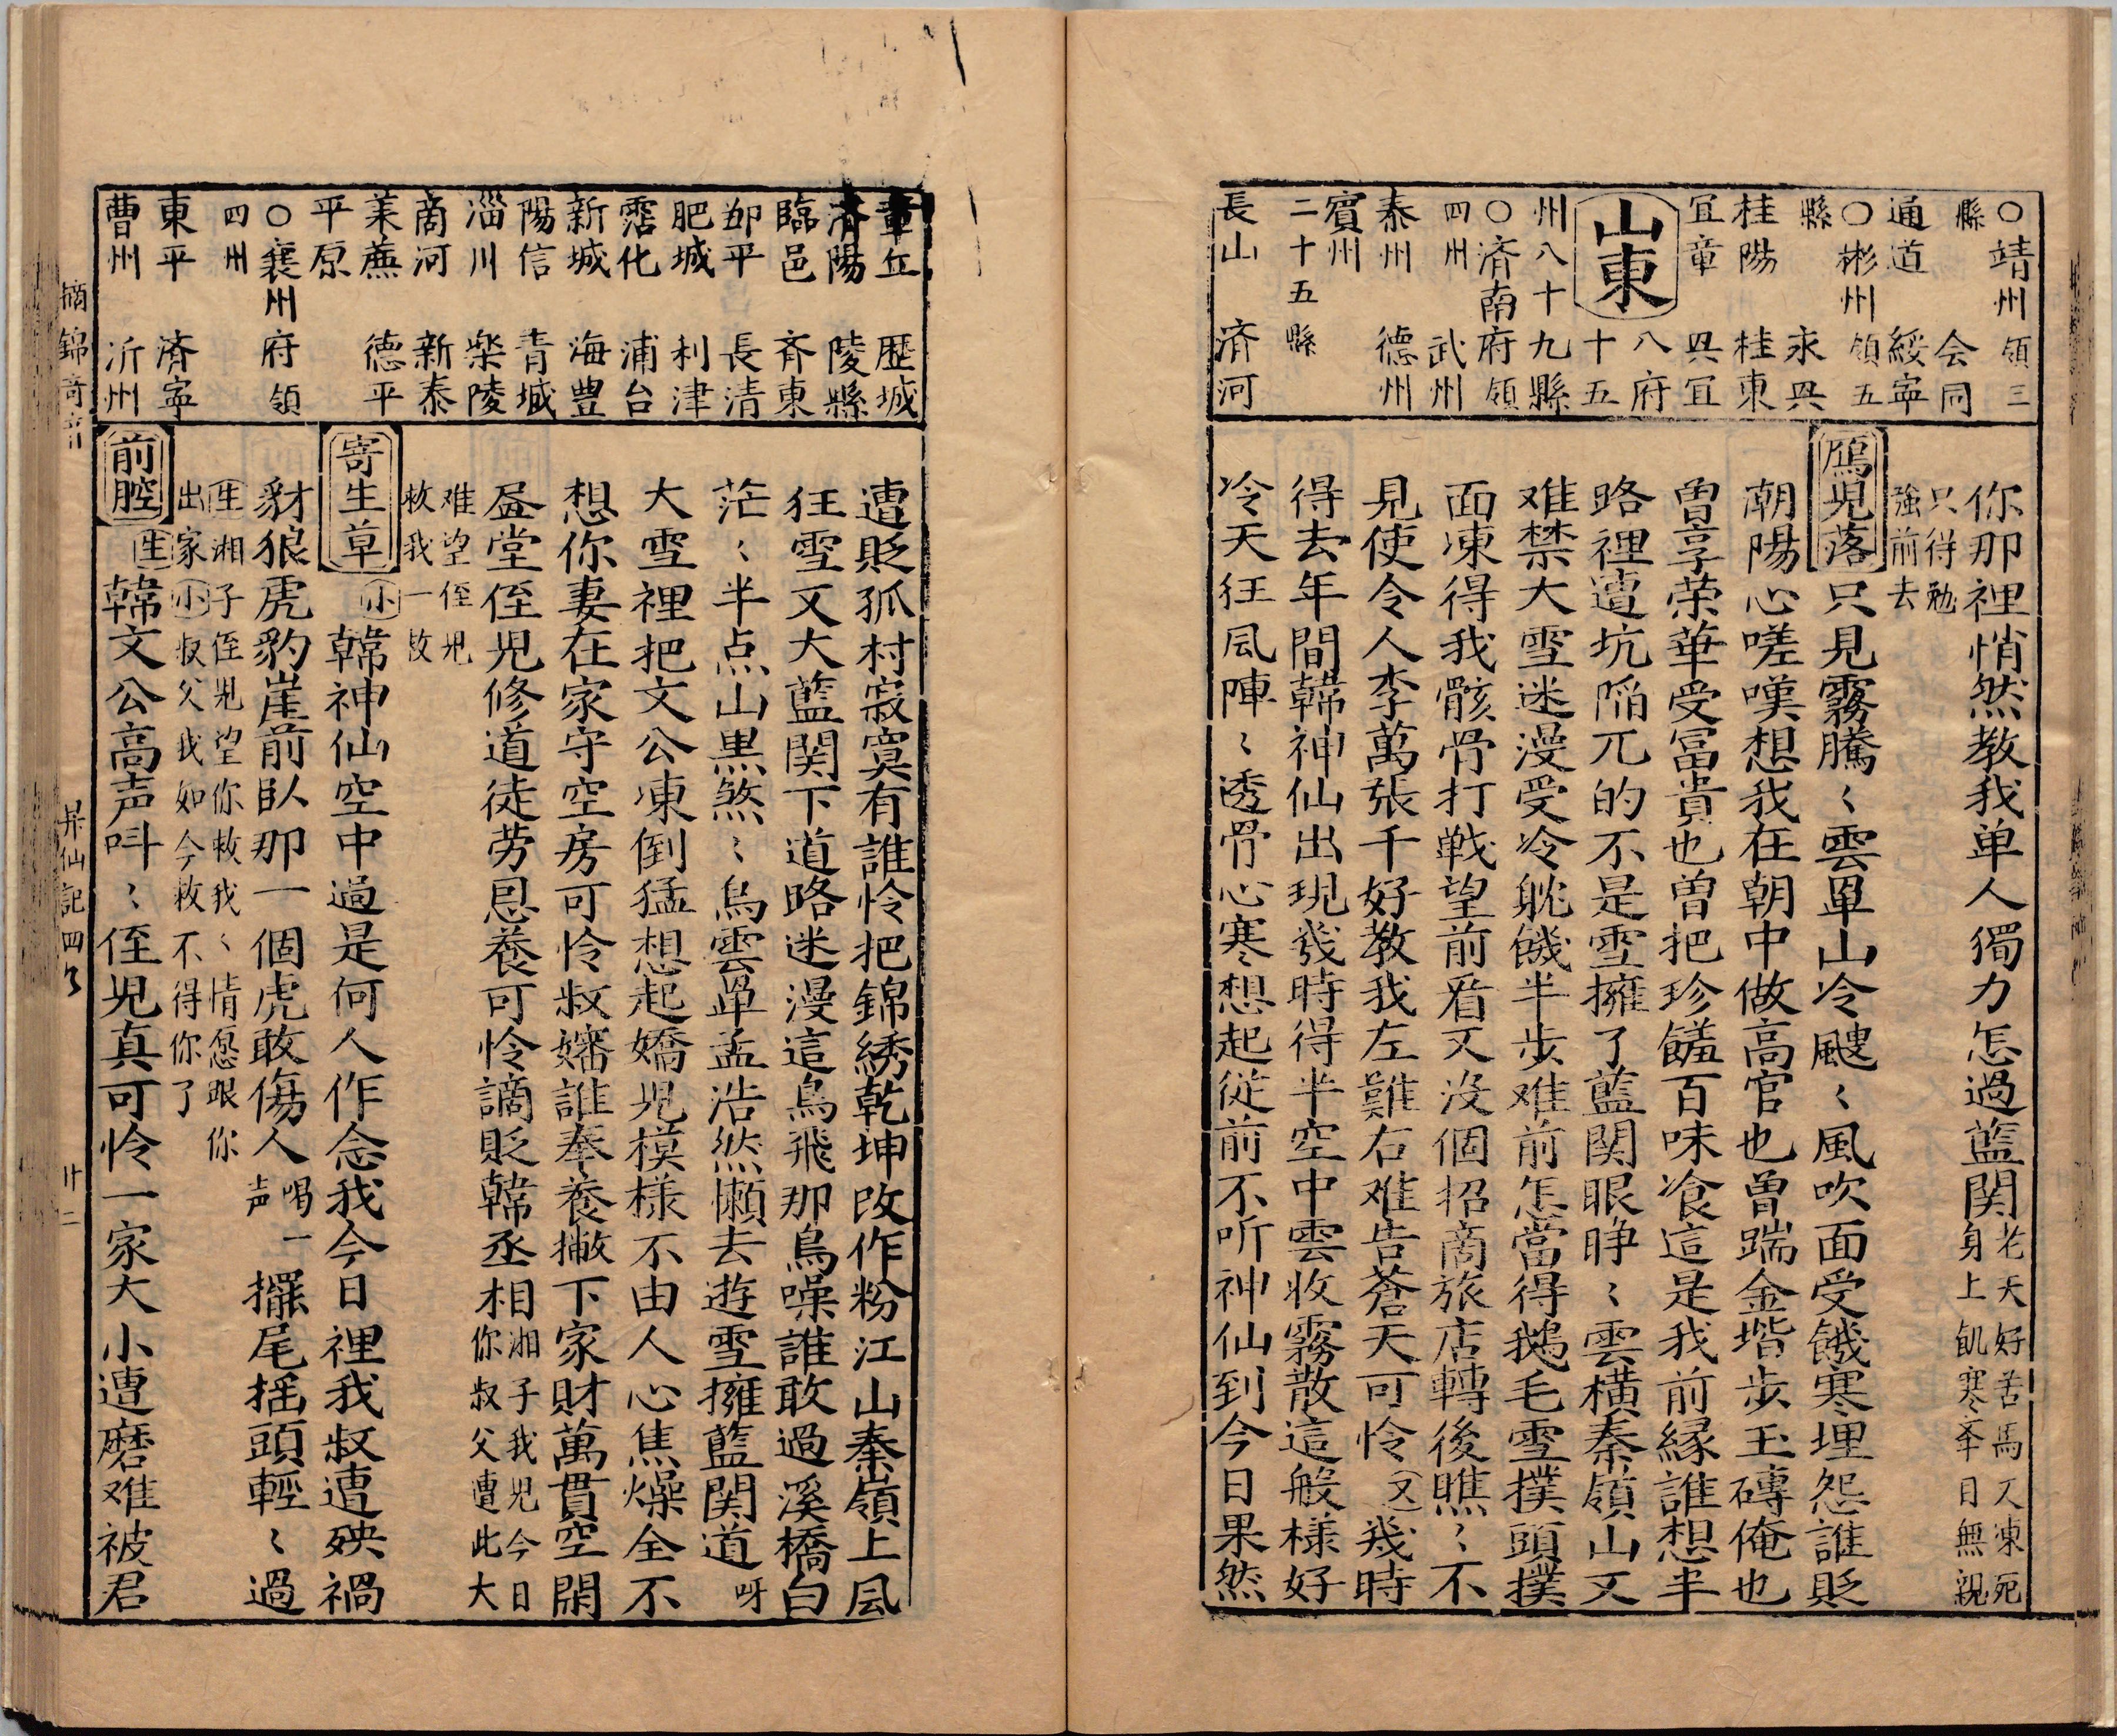 ○靖州領三
縣　会同
通道　綏寧
○彬州領五
縣　永興
桂陽　桂東
宜章　興宜
山東
八府
十五
州八十九縣
○済南府領
四州　武州
泰州　德州
賓州
二十五縣
長山　済河
你那裡悄然教我单人獨力怎過藍関老天好苦馬又凍死
身上飢寒举目無親
只得勉
強前去
鴈児落
只見霧騰〻雲罩山冷颼〻風吹面受饑寒埋怨誰貶
朝陽心嗟嘆想我在朝中做高官也曾踹金堦步玉磚俺也
曽享荣華受冨貴也曽把珍饈百味飡這是我前縁誰想半
路裡遭坑陥兀的不是雪擁了藍関眼睁〻雲横秦嶺山又
难禁大雪迷漫受冷躭饑半步难前怎當得鵝毛雪撲頭撲
面凍得我骸骨打戦望前看又没個招商旅店轉後瞧〻不
見使令人李萬張千好教我左難右难告蒼天可怜又幾時
得去年間韓神仙出現幾時得半空中雲收霧散這般樣好
冷天狂風陣〻透骨心寒想起従前不听神仙到今日果然
章丘　歷城
済陽　陵縣
臨邑　斉東
邹平　長清
肥城　利津
霑化　浦台
新城　海豊
陽信　青城
淄川　樂陵
商河　新泰
莱蕪　德平
平原
○襄州府領
四州
東平　済寧
曹州　沂州
遭貶孤村寂寞有誰怜把錦綉乾坤改作粉江山秦嶺上風
狂雪又大藍関下道路迷漫這鳥飛那鳥噪誰敢過溪橋白
茫〻半点山黒煞〻烏雲罩孟浩然懶去遊雪擁藍関道呀
大雪裡把文公凍倒猛想起嬌児模樣不由人心焦燥全不
想你妻在家守空房可怜叔嬸誰奉養撇下家財萬貫空閙
盈堂侄児修道徒劳恩養可怜謫貶韓丞相湘子我児今日
你叔父遭此大
难望侄児
救我一救
寄生草
小韓神仙空中過是何人作念我今日裡我叔遭殃禍
豺狼虎豹崖前臥那一個虎敢傷人喝一
声擺尾揺頭輕〻過
生湘子侄児望你救我〻情愿跟你
出家小叔父我如今救不得你了
前腔
生韓文公高声呌〻侄児真可怜一家大小遭磨难被君
摘錦奇音
昇仙記四乂
廿二